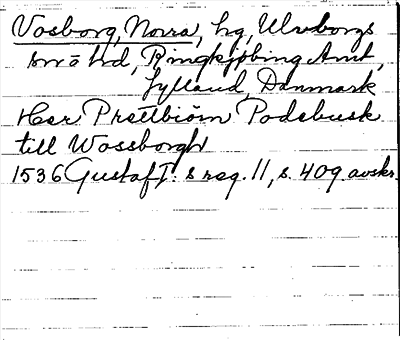 Vosborg, Norra, hg, Ulvborgs
hd, Ringkjöbing Amt,
Jylland, Danmark
Her Prettbiörn Podebusk
till Wossborgh
1536 Gustaf I: s reg. 11, s. 409 avskr.